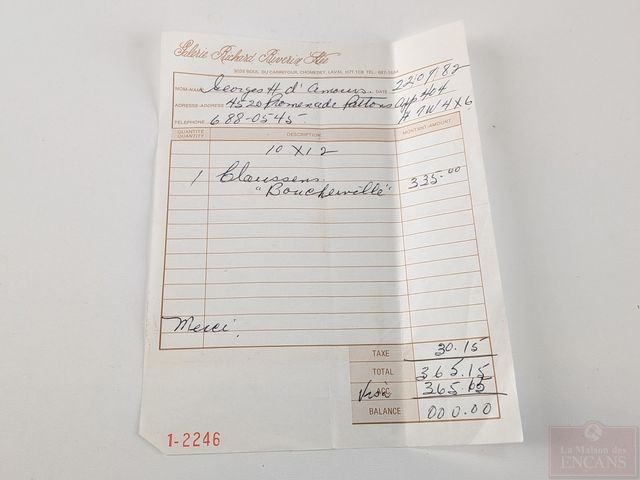 Galerie Richard Riverin Ltée
3025 BOUL. DU CARREFOUR, CHOMEDEY, LAVAL H7T 1C8 TEL.: 687-
NOM-NAME Georges H d'Amours DATE 22 09 82
ADRESSE-ADDRESS 4520 Promenade Pattons app 404
TELEPHONE 688-0545 H 7W 4X6
QUANTITÉ QUANTITY DESCRIPTION MONTANT-AMOUNT
10 X 12
1 Claussens 335.00
"Boucherville"
Merci.
TAXE 30.15
TOTAL 365.15
Visa ACC. 365.15
BALANCE 000.00
1-2246
La Maison des
ENCANS